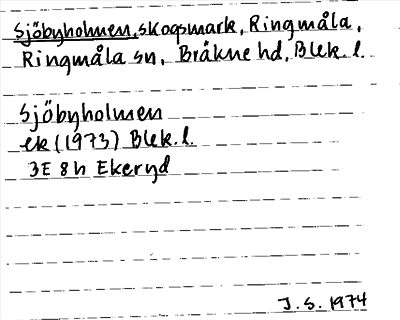 Sjöbyholmen, skogsmark, Ringmåla,
Ringmåla sn, Bräkne hd, Blek. l.
Sjöbyholmen
ek (1973) Blek. l.
3E 8h Ekeryd
J. S. 1974